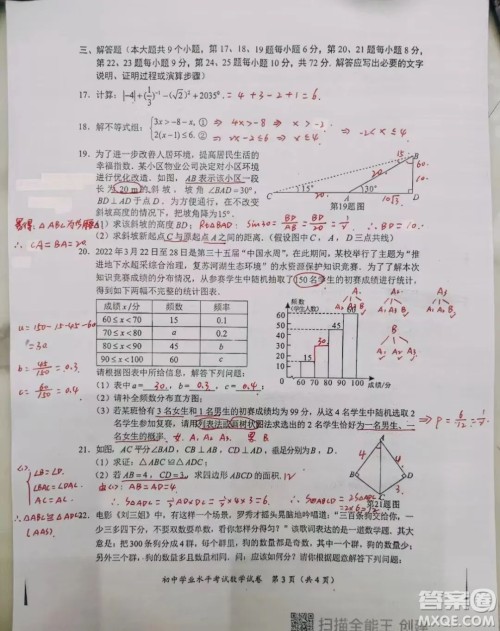 三、解答题（本大题共 9 个小题，第 17、18、19 题每小题 6 分，第 20、21 题每小题 8 分，
第 22、23 题每小题 9 分，第 24、25 题每小题 10 分，共 72 分. 解答应写出必要的文字
说明、证明过程或演算步骤）
17. 计算：|-4|+(1/3)⁻¹-(√2)²+2035⁰. = 4+3-2+1=6.
18. 解不等式组：{3x>-8-x, ① ⇒ 4x>-8 ⇒ x>-2
2(x-1)≤6. ② ⇒ x-1≤3 ⇒ x≤4. ⇒ -2<x≤4.
19. 为了进一步改善人居环境，提高居民生活的
幸福指数. 某小区物业公司决定对小区环境
进行优化改造. 如图，AB 表示该小区一段
长 20 m 的斜坡，坡角∠BAD=30°，
BD⊥AD 于点 D. 为方便通行，在不改变
斜坡高度的情况下，把坡角降为 15°.
B 15° 60° 20 10 C 15° 20 A 30° D 10√3
第19题图
（1）求该斜坡的高度 BD; Rt△BAD: sin30=BD/AB=BD/20=1/2 ∴BD=10.
（2）求斜坡新起点 C 与原起点 A 之间的距离.（假设图中 C、A、D 三点共线）
∴CA=BA=20.
20. 2022 年 3 月 22 日至 28 日是第三十五届“中国水周”，在此期间，某校举行了主题为“推
进地下水超采综合治理，复苏河湖生态环境”的水资源保护知识竞赛. 为了了解本次
知识竞赛成绩的分布情况，从参赛学生中随机抽取了 150 名学生的初赛成绩进行统计，
得到如下两幅不完整的统计图表.
成绩 x/分 频数 频率
60≤x<70 15 0.1
70≤x<80 a 0.2
80≤x<90 45 b
90≤x<100 60 c
a=150-15-45-60
=30
b=45/150=0.3
c=60/150=0.4
频数
(学生人数)
60
50
40
30
20
10
0 60 70 80 90 100 成绩/分
15 30 45 60
请根据图表中所给信息，解答下列问题：
（1）表中 a= 30，b= 0.3，c= 0.4；
（2）请补全频数分布直方图；
（3）若某班恰有 3 名女生和 1 名男生的初赛成绩均为 99 分，从这 4 名学生中随机选取
2 名学生参加复赛，请用列表法或画树状图法求选出的 2 名学生恰好为一名男生、
一名女生的概率. 女 A₁ A₂ A₃ 男 B
⇒ P=6/12=1/2.
21. 如图，AC 平分∠BAD，CB⊥AB，CD⊥AD，垂足分别为 B、D.
（1）求证：△ABC≌△ADC;
（2）若 AB=4，CD=3，求四边形 ABCD 的面积.
A B D C
第21题图
(1) {∠B=∠D.
∠BAC=∠DAC.
AC=AC
∴△ABC≌△ADC
(AAS).
由(1): AB=AD=4.
∴S△ADC=1/2 AD×DC=1/2×4×3=6. ∴S四ABCD=2S△ADC
=2×6=12.
22. 电影《刘三姐》中，有这样一个场景，罗秀才摇头晃脑地吟唱道：“三百条狗交给你，一
少三多四下分，不要双数要单数，看你怎样分得匀？”该歌词表达的是一道数学题. 其大
意是：把 300 条狗分成 4 群，每个群里，狗的数量都是奇数，其中一个群，狗的数量少；
另外三个群，狗的数量多且数量相同. 问：应该如何分？请你根据题意解答下列问题：
初中学业水平考试数学试卷 第 3 页（共 4 页）
扫描全能王 创建
答案圈
MXQE.COM